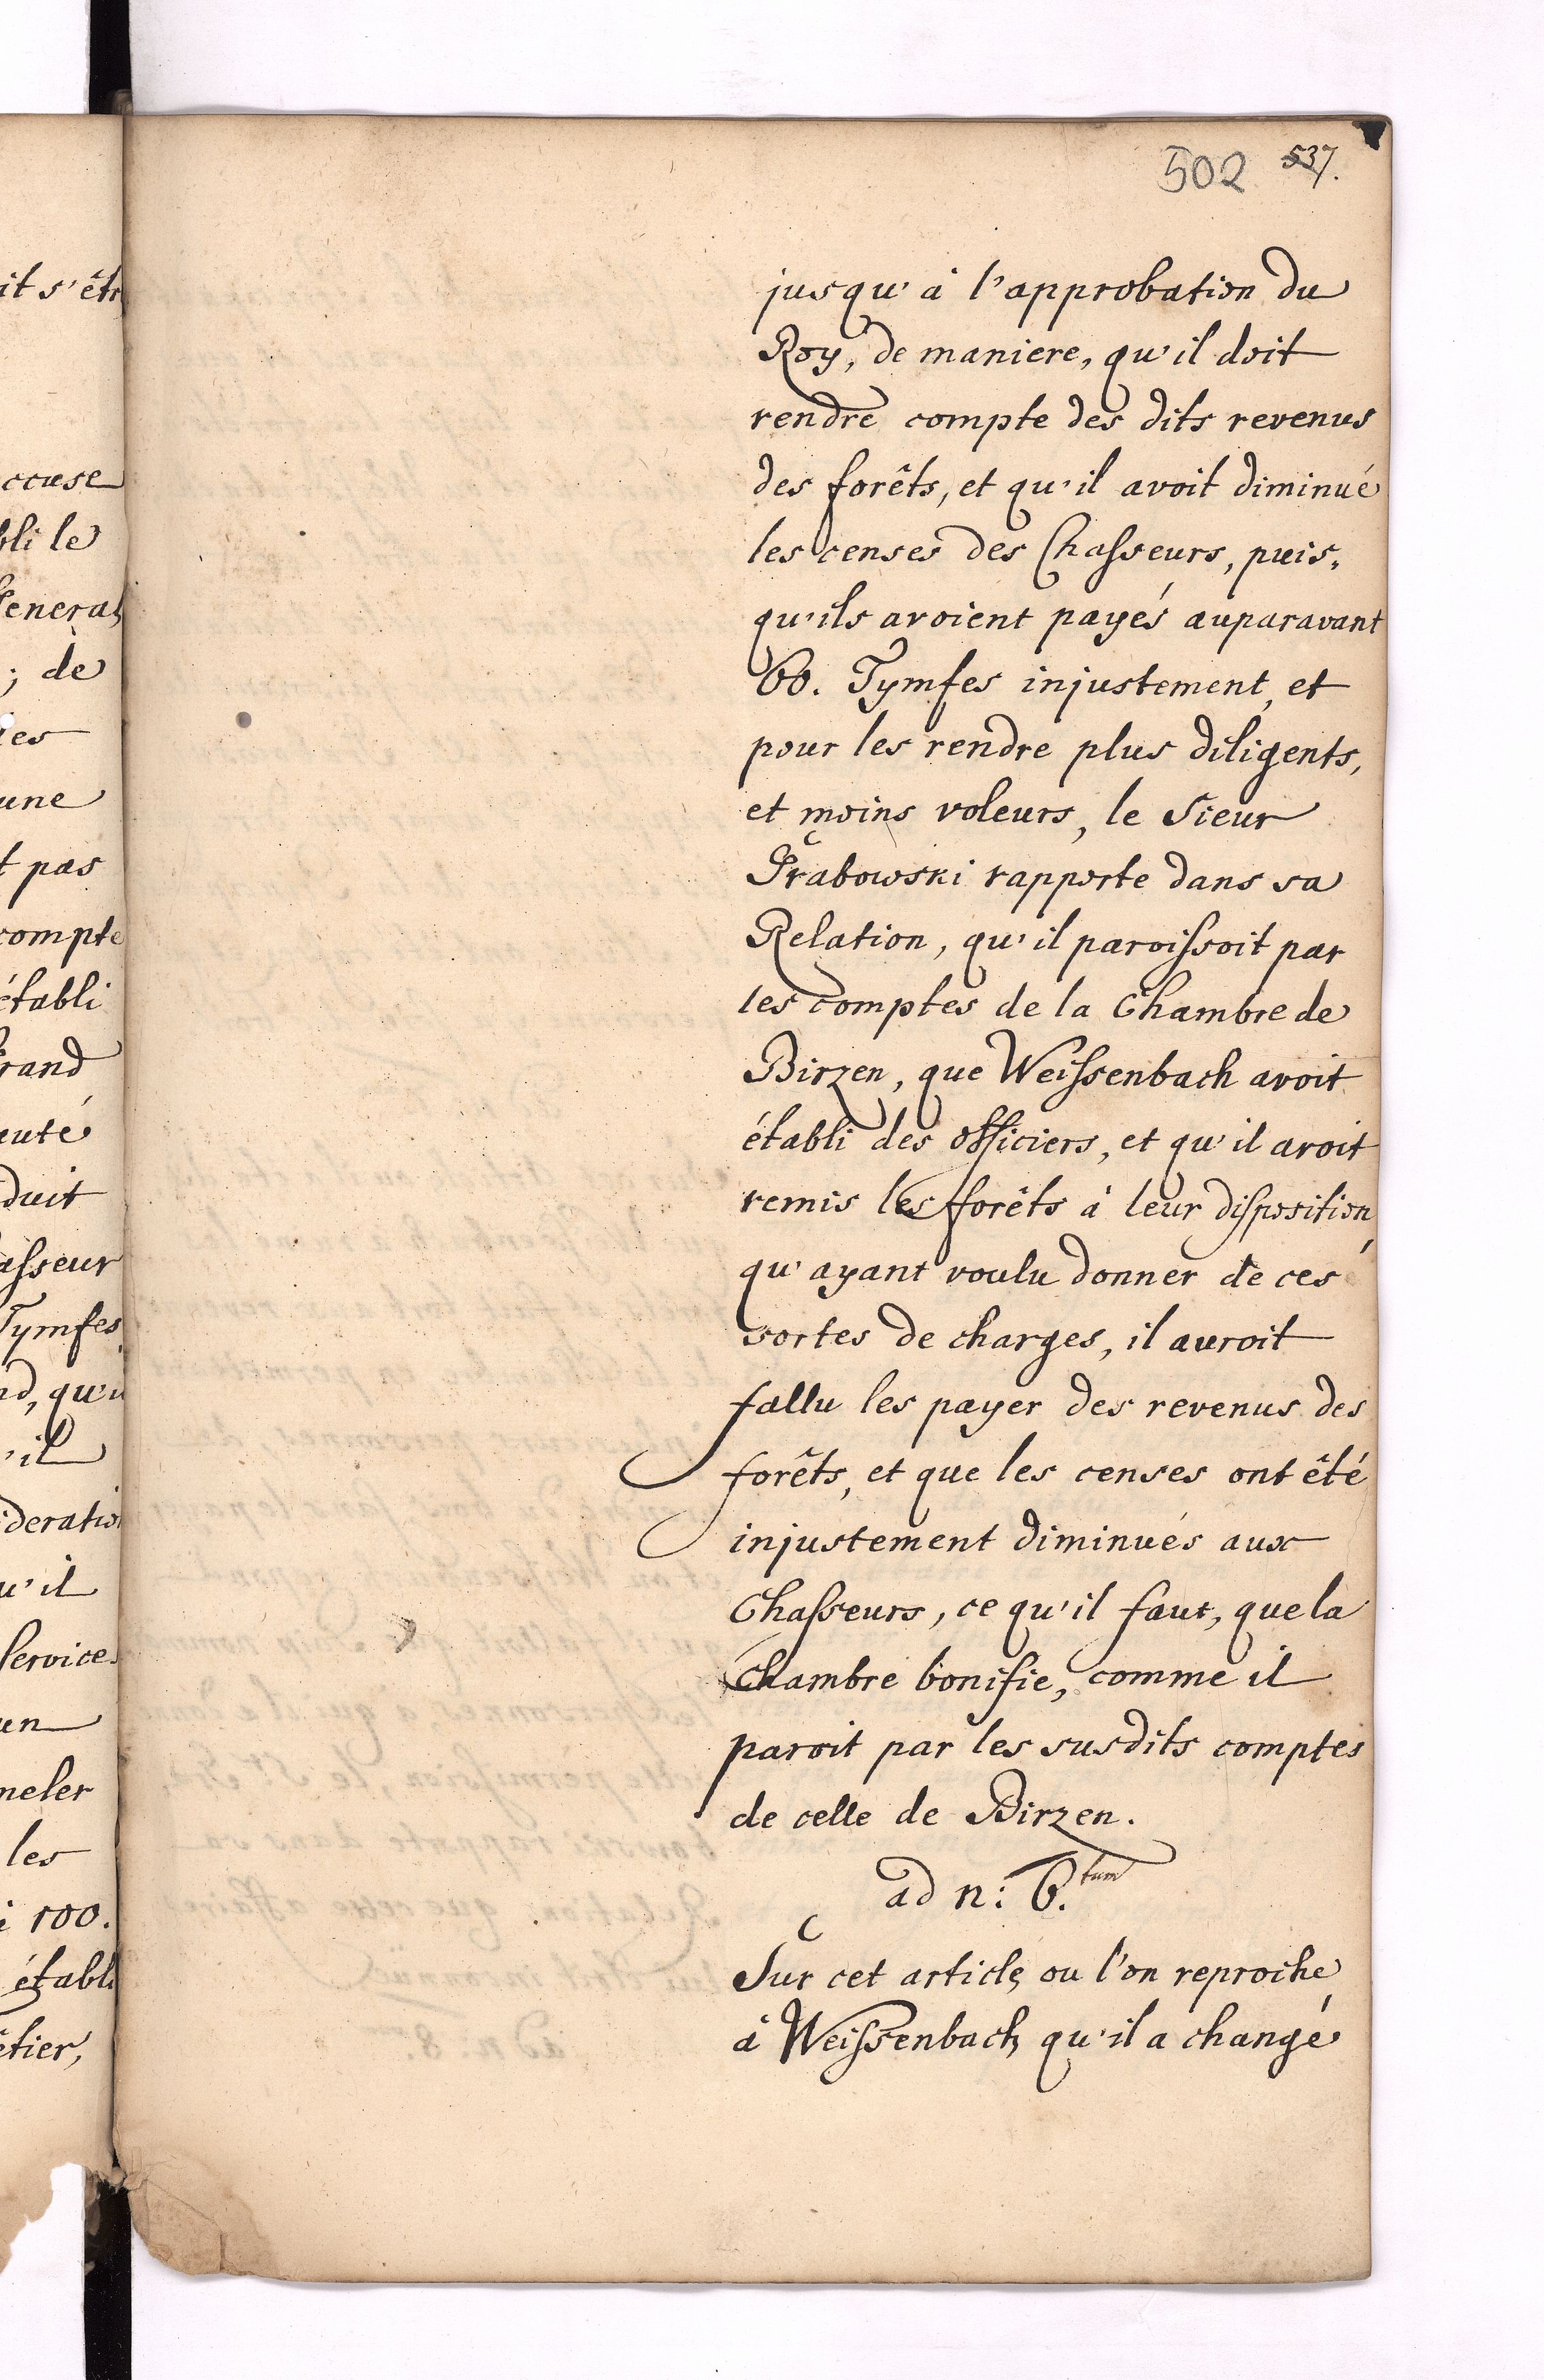 502 537.
jusqu'à l'approbation du
Roy, de maniere, qu'il doit
rendre compte des dits revenus
des forêts, et qu'il avoit diminué
les censes des Chasseurs, puis,
qu'ils avoient payés auparavant
60. Tymfes injustement, et
pour les rendre plus diligents,
et moins voleurs, le Sieur
Grabowski rapporte dans sa
Relation, qu'il paroissoit par
les comptes de la Chambre de
Birzen, que Weissenbach avoit
établi des officiers, et qu'il avoit
remis les forêts à leur disposition,
qu'ayant voulu donner de ces
sortes de charges, il auroit
fallu les payer des revenus des
forêts, et que les censes ont êté
injustement diminués aux
Chasseurs, ce qu'il faut, que la
Chambre bonifie, comme il
paroit par les susdits comptes
de celle de Birzen.
ad n: 6.tum
Sur cet article, ou l'on reproche
à Weissenbach, qu'il a changé
it s'êtr
ccuse
bli le
General
; de
ies
une
t pas
compte
établi
Grand
euté
duit
asseur
Tymfes
nd, qu'u
'il
ideration
u'il
Service
un
meler
les
i 100.
établi
êtier,